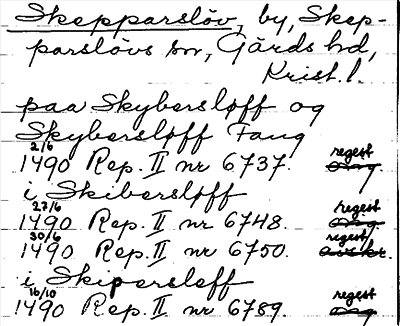 Skepparslöv, by, Skep-
parslövs sn, Gärds hd,
Krist. l.
paa Skybersløff og
Skybersløff Fang
2/6 regest
1490 Rep. II nr 6737. orig.
i Skibersløff
27/6 regest
1490 Rep. II nr 6748. orig.
30/6 regest
1490 Rep. II nr 6750. avskr.
i Skipersleff
16/10 regest
1490 Rep. II nr 6789. orig.